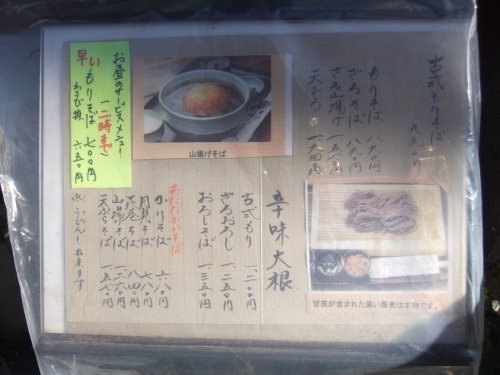 古式もりそば
もりそば 八九〇
ざるそば
ざる山揚げ
天ざる
甘皮が含まれた黒い蕎麦は本物です。
山揚げそば
お昼のサービスメニュー
一二時まで
早い
もりそば 七〇〇円
わさび抜 六五〇円
辛味大根
古式もり 一、二〇〇
ざるおろし 一、二五〇
おろしそば 一、三五〇
あたたかいそば
かけそば 六八〇円
月見そば 七八〇円
花巻そば 八四〇円
山揚げそば 一、二六〇円
天ぷらそば 一、五七〇円
うどんも出来ます